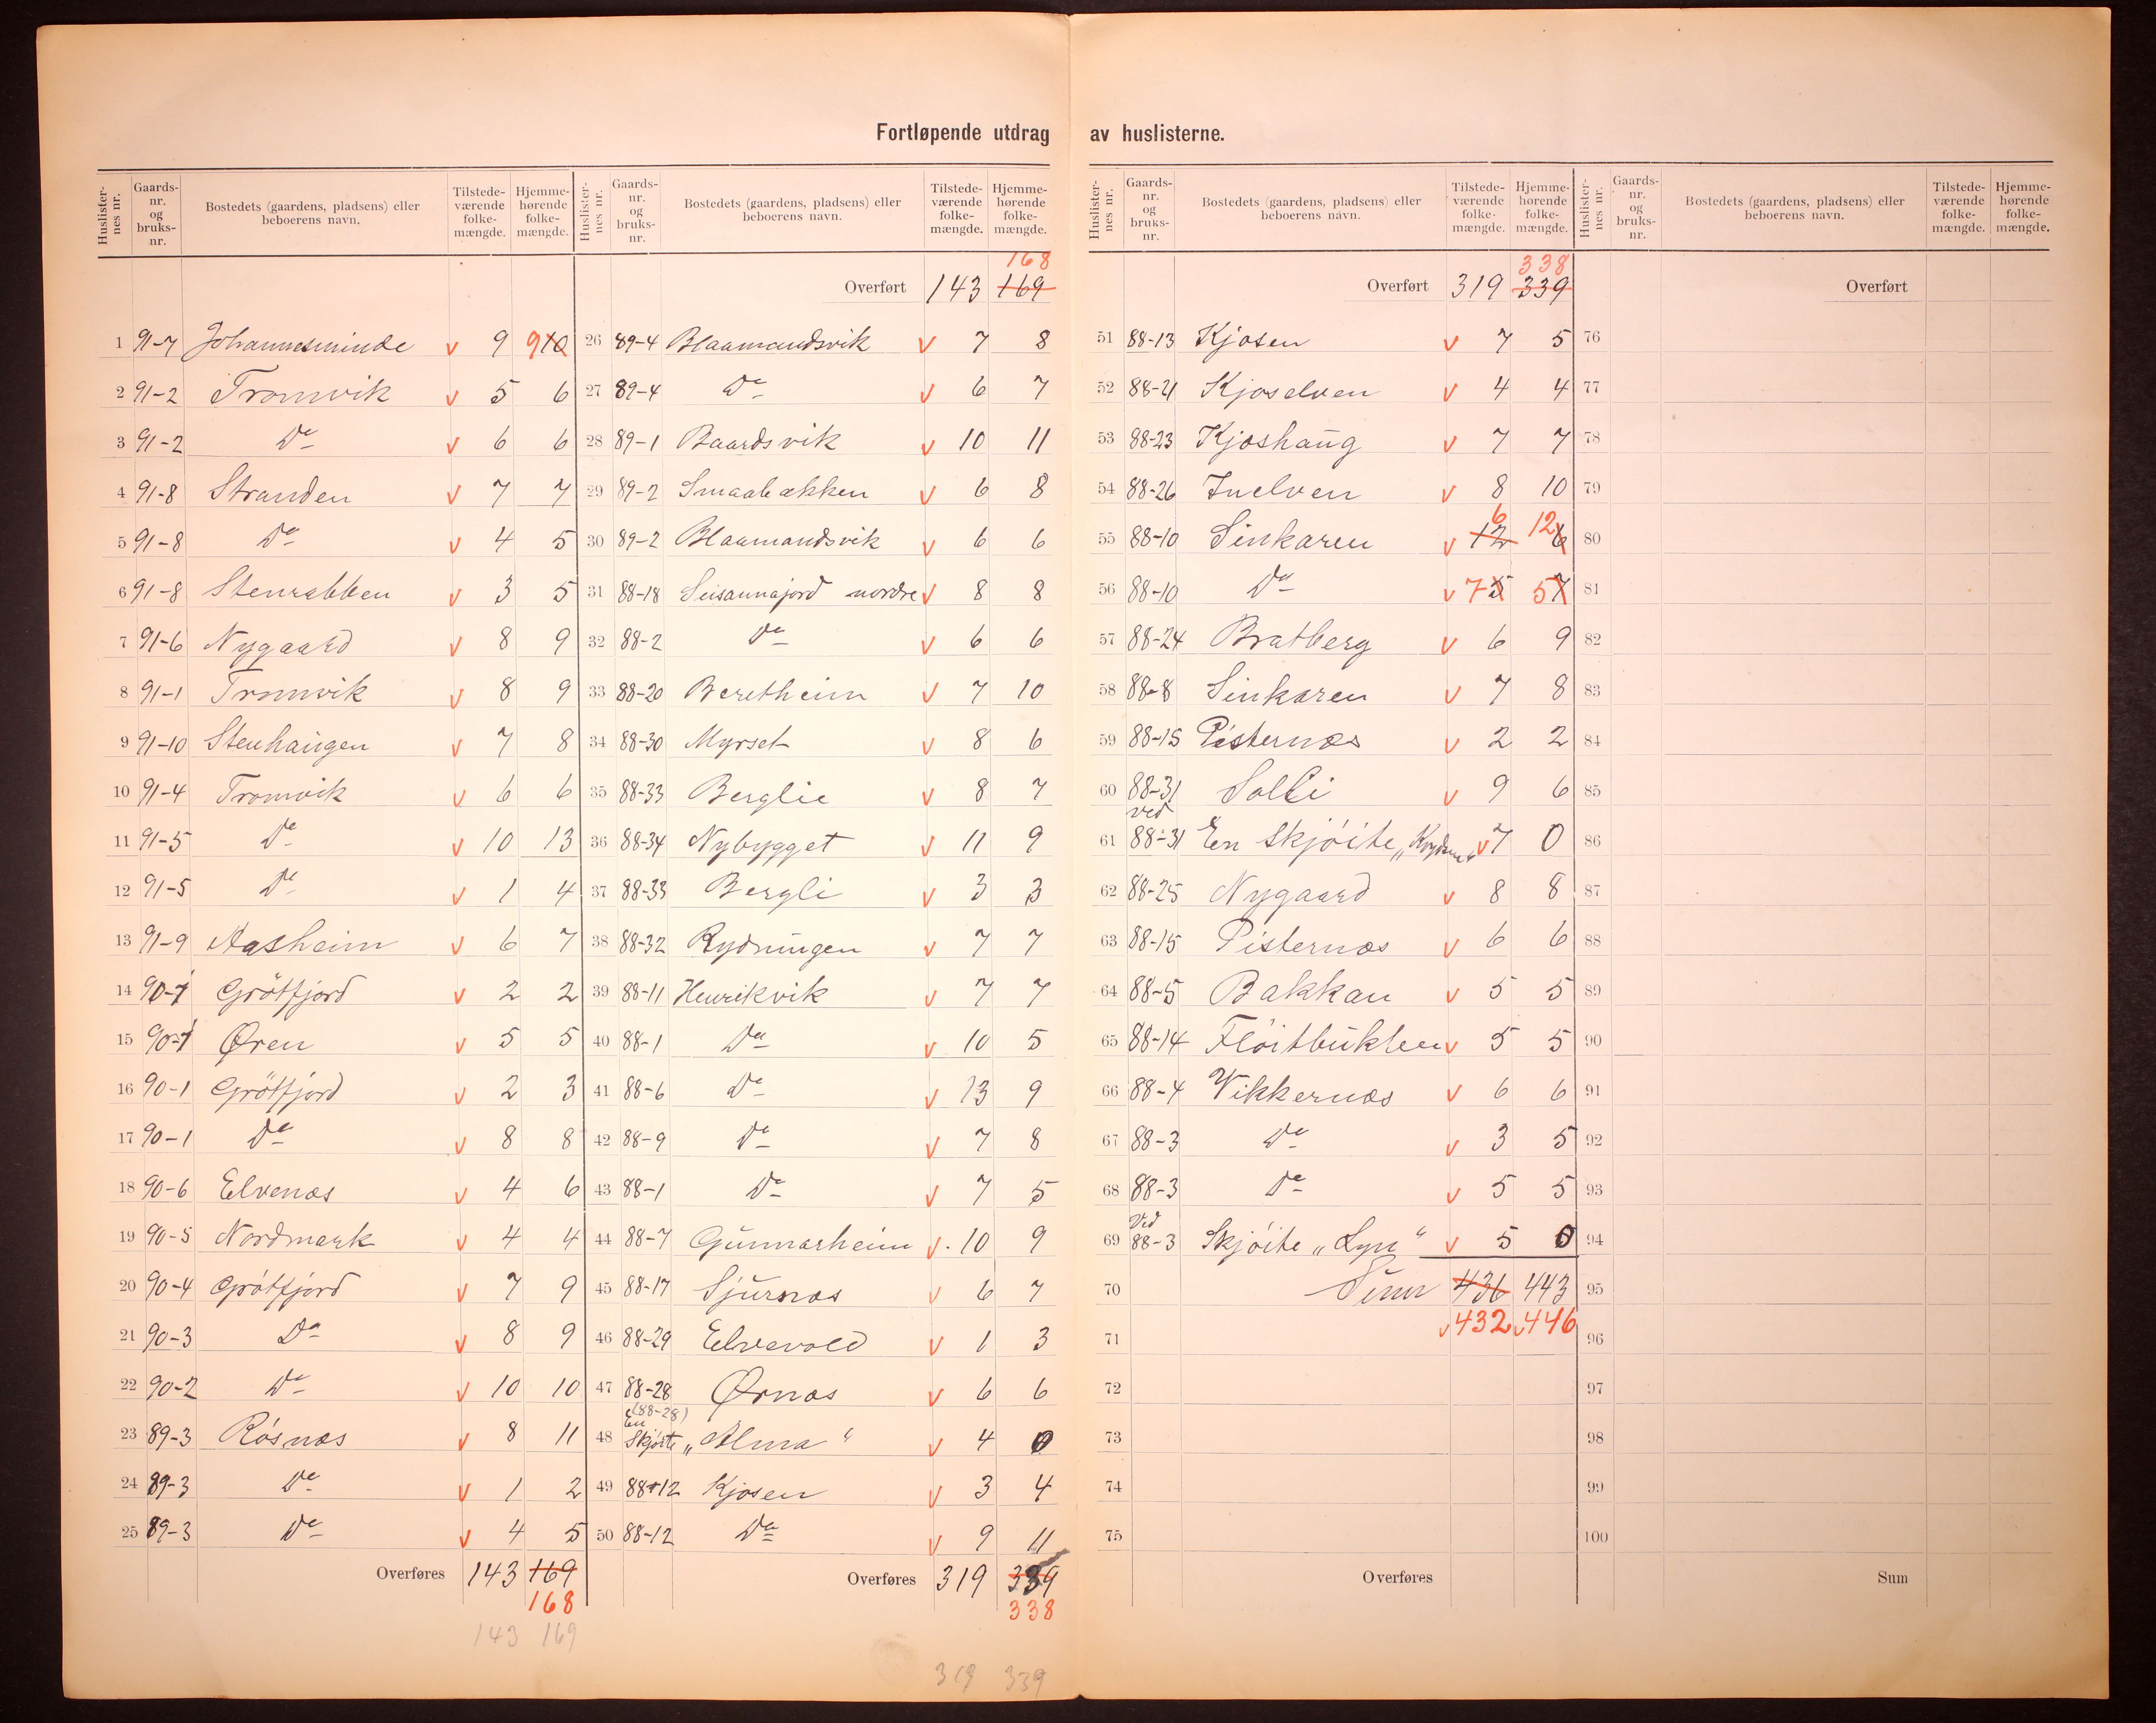 Fortløpende utdrag av huslisterne.
Huslister-nes nr. Gaards-nr. og bruks-nr. Bostedets (gaardens, pladsens) eller beboerens navn. Tilstede-værende folke-mængde. Hjemme-hørende folke-mængde.
1 91-7 Johannesminde v 9 9 10
2 91-2 Tromvik v 5 6
3 91-2 Do v 6 6
4 91-8 Stranden v 7 7
5 91-8 Do v 4 5
6 91-8 Stenrabben v 3 5
7 91-6 Nygaard v 8 9
8 91-1 Tromvik v 8 9
9 91-10 Stenhaugen v 7 8
10 91-4 Tromvik v 6 6
11 91-5 Do v 10 13
12 91-5 Do v 1 4
13 91-9 Aasheim v 6 7
14 90-1 Grötfjord v 2 2
15 90-1 Øren v 5 5
16 90-1 Grötfjord v 2 3
17 90-1 Do v 8 8
18 90-6 Elvenæs v 4 6
19 90-5 Nordmark v 4 4
20 90-4 Grötfjord v 7 9
21 90-3 Do v 8 9
22 90-2 Do v 10 10
23 89-3 Rösnæs v 8 11
24 89-3 Do v 1 2
25 89-3 Do v 4 5
Overføres 143 169
168
143 169
Huslister-nes nr. Gaards-nr. og bruks-nr. Bostedets (gaardens, pladsens) eller beboerens navn. Tilstede-værende folke-mængde. Hjemme-hørende folke-mængde.
168
Overført 143 169
26 89-4 Blaamandsvik v 7 8
27 89-4 Do v 6 7
28 89-1 Baardsvik v 10 11
29 89-2 Smaabækken v 6 8
30 89-2 Blaamandsvik v 6 6
31 88-18 Seisannajord nordre v 8 8
32 88-2 Do v 6 6
33 88-20 Beretheim v 7 10
34 88-30 Myrset v 8 6
35 88-33 Berglie v 8 7
36 88-34 Nybygget v 11 9
37 88-33 Bergli v 3 3
38 88-32 Rydningen v 7 7
39 88-11 Henrikvik v 7 7
40 88-1 Do v 10 5
41 88-6 Do v 13 9
42 88-9 Do v 7 8
43 88-1 Do v 7 5
44 88-7 Gunnarheim v. 10 9
45 88-17 Sjursnæs v 6 7
46 88-29 Elvevold v 1 3
47 88-28 Ørnæs v 6 6
(88-28)
48 En Skjöite „Alma“ v 4 0
49 88-12 Kjosen v 3 4
50 88-12 Do v 9 11
Overføres 319 339
338
319 339
Huslister-nes nr. Gaards-nr. og bruks-nr. Bostedets (gaardens, pladsens) eller beboerens navn. Tilstede-værende folke-mængde. Hjemme-hørende folke-mængde.
338
Overført 319 339
51 88-13 Kjosen v 7 5
52 88-21 Kjoselven v 4 4
53 88-23 Kjoshaug v 7 7
54 88-26 Inelven v 8 10
55 88-10 Sinkaren v 12 6 12 6
56 88-10 Do v 7 5 5 7
57 88-24 Bratberg v 6 9
58 88-8 Sinkaren v 7 8
59 88-15 Pisternæs v 2 2
60 88-31 Solli v 9 6
61 ved 88-31 En Skjöite v 7 0
62 88-25 Nygaard v 8 8
63 88-15 Pisternæs v 6 6
64 88-5 Bakkan v 5 5
65 88-14 Flöitbukten v 5 5
66 88-4 Vikkernæs v 6 6
67 88-3 Do v 3 5
68 88-3 Do v 5 5
69 Ved 88-3 Skjöite „Lyn“ v 5 0
70 Sum 436 443
71 v 432 v 446
72
73
74
75
Overføres
Huslister-nes nr. Gaards-nr. og bruks-nr. Bostedets (gaardens, pladsens) eller beboerens navn. Tilstede-værende folke-mængde. Hjemme-hørende folke-mængde.
Overført
76
77
78
79
80
81
82
83
84
85
86
87
88
89
90
91
92
93
94
95
96
97
98
99
100
Sum